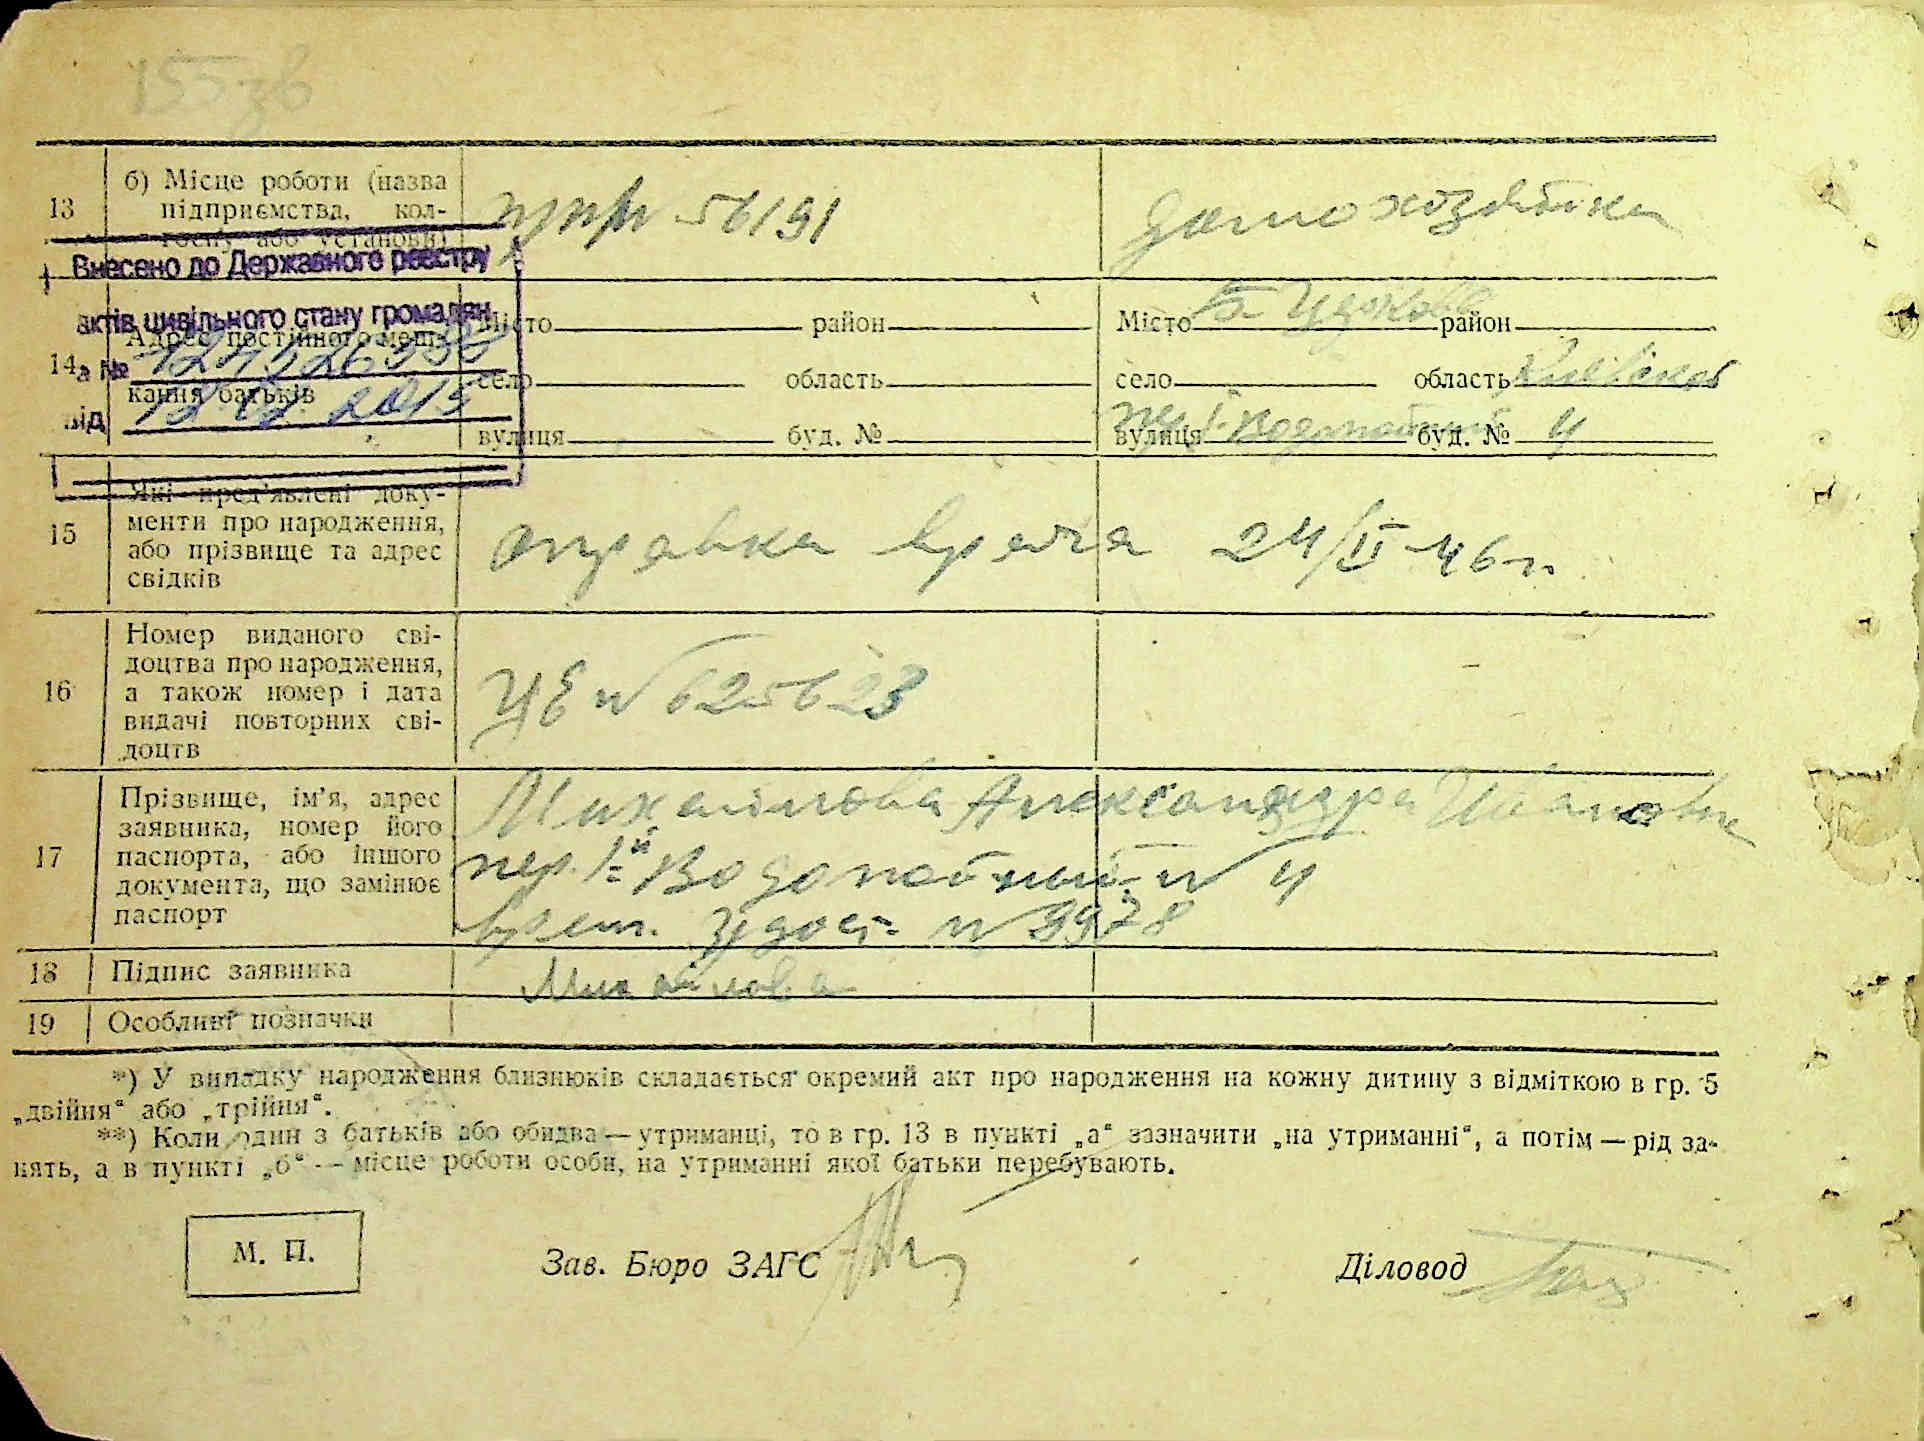 155 зв
13
б) Місце роботи (назва
підприємства, кол-
госпу або установи)
п/п 56191
домохозяйка
Внесено до Державного реєстру
актів цивільного стану громадян
за №
від 12. 2015
14
Адрес постійного меш-
кання батьків
Місто район
село область
вулиця буд. №
Місто Б. Церковь район
село область Киевская
вулиця пер. I Водопойный буд. № 4
15
Які пред'явлені доку-
менти про народження,
або прізвище та адрес
свідків
справка врача 24/II-46 г.
16
Номер виданого сві-
доцтва про народження,
а також номер і дата
видачі повторних сві-
доцтв
ЦЕ № 625623
17
Прізвище, ім'я, адрес
заявника, номер його
паспорта, або іншого
документа, що замінює
паспорт
Михайлова Александра Ивановна
пер. 1й Водопойный № 4
врем. удост. № 9978
18 Підпис заявника
Михайлова
19 Особливі позначки
*) У випадку народження близнюків складається окремий акт про народження на кожну дитину з відміткою в гр. 5
„двійня“ або „трійня“.
**) Коли один з батьків або обидва — утриманці, то в гр. 13 в пункті „а“ зазначити „на утриманні“, а потім — рід за-
нять, а в пункті „б“ — місце роботи особи, на утриманні якої батьки перебувають.
М. П.
Зав. Бюро ЗАГС
Діловод